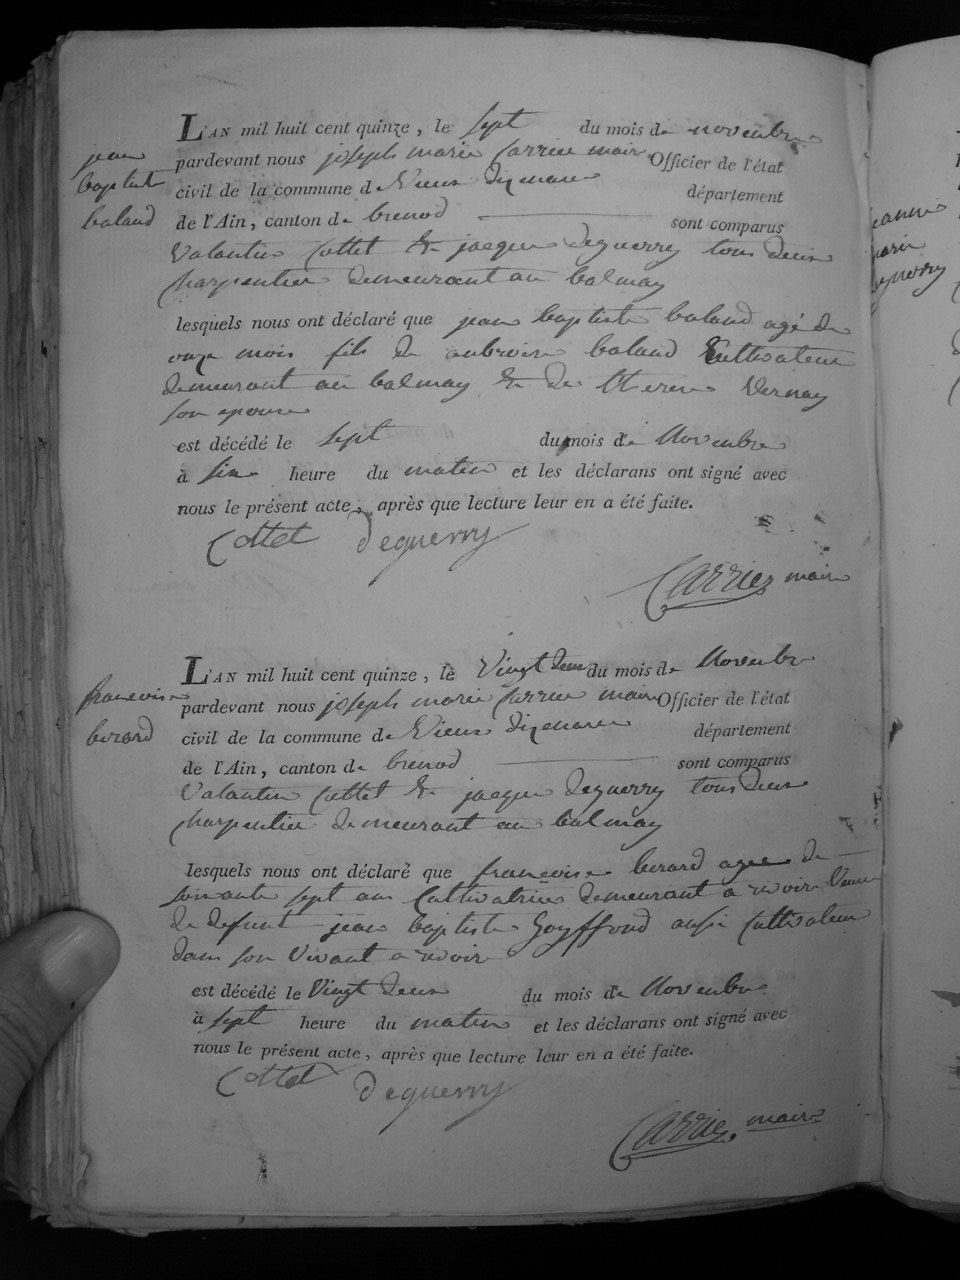 L'AN mil huit cent quinze, le sept du mois de novembre
jean
baptiste
baland
pardevant nous joseph marie Carrier maire Officier de l'état
civil de la commune de Vieux Dizenave département
de l'Ain, canton de brenod sont comparus
Valantin Cottet & jacque Deguerry tous deux
Charpentier demeurant au balmay
lesquels nous ont déclaré que jean baptiste baland agé de
onze mois fils de aubroise baland Cultivateur
demeurant au balmay & de therese Vernay
son epouse
est décédé le sept du mois de Novembre
à six heure du matin et les déclarans ont signé avec
nous le présent acte, après que lecture leur en a été faite.
Cottet Deguerry
Carrier maire
L'AN mil huit cent quinze, le Vingt deux du mois de Novembre
francoise
berard
pardevant nous joseph marie Carrier maire Officier de l'état
civil de la commune de Vieux Dizenave département
de l'Ain, canton de brenod sont comparus
Valantin Cottet & jacque Deguerry tous deux
Charpentier demeurant au balmay
lesquels nous ont déclaré que francoise berard agee de
soixante sept ans Cultivatrice demeurant a Veuve
de defunt jean baptiste Goyffond aussi Cultivateur
dans son Vivant a
est décédé le Vingt deux du mois de Novembre
à sept heure du matin et les déclarans ont signé avec
nous le présent acte, après que lecture leur en a été faite.
Cottet Deguerry
Carrier maire